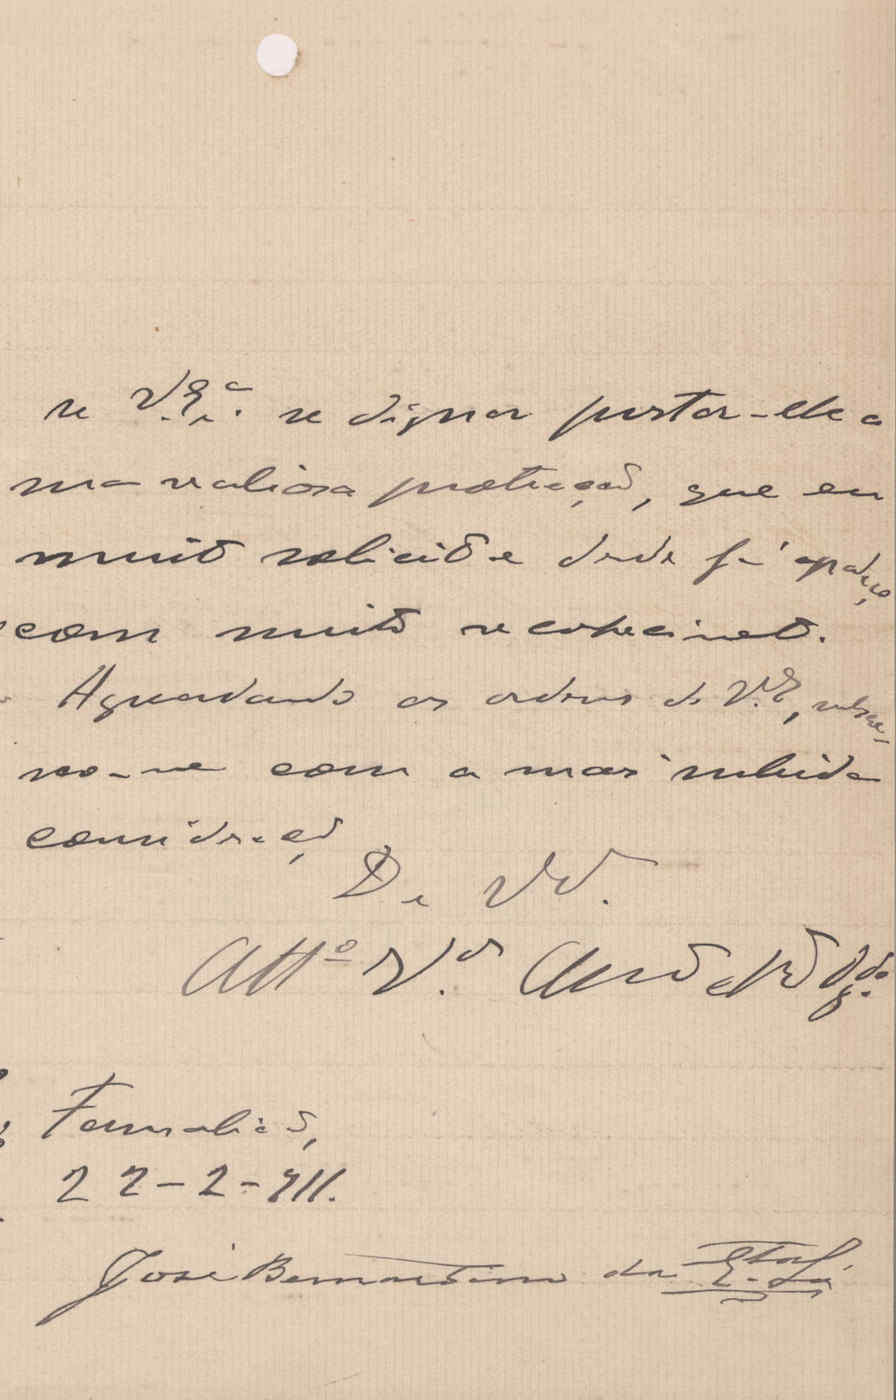 se V. Ex.ª se dignar prestar-lhe a
sua valiosa protecção, que eu
muito solicito e desde já agradeço,
com muito reconhecimento.
Aguardando as ordens de V. Ex, subscre-
vo-me com a mais subida
consideração
De V.
Att.º V.or
Famalicão,
22-2-911.
José Bernardino da